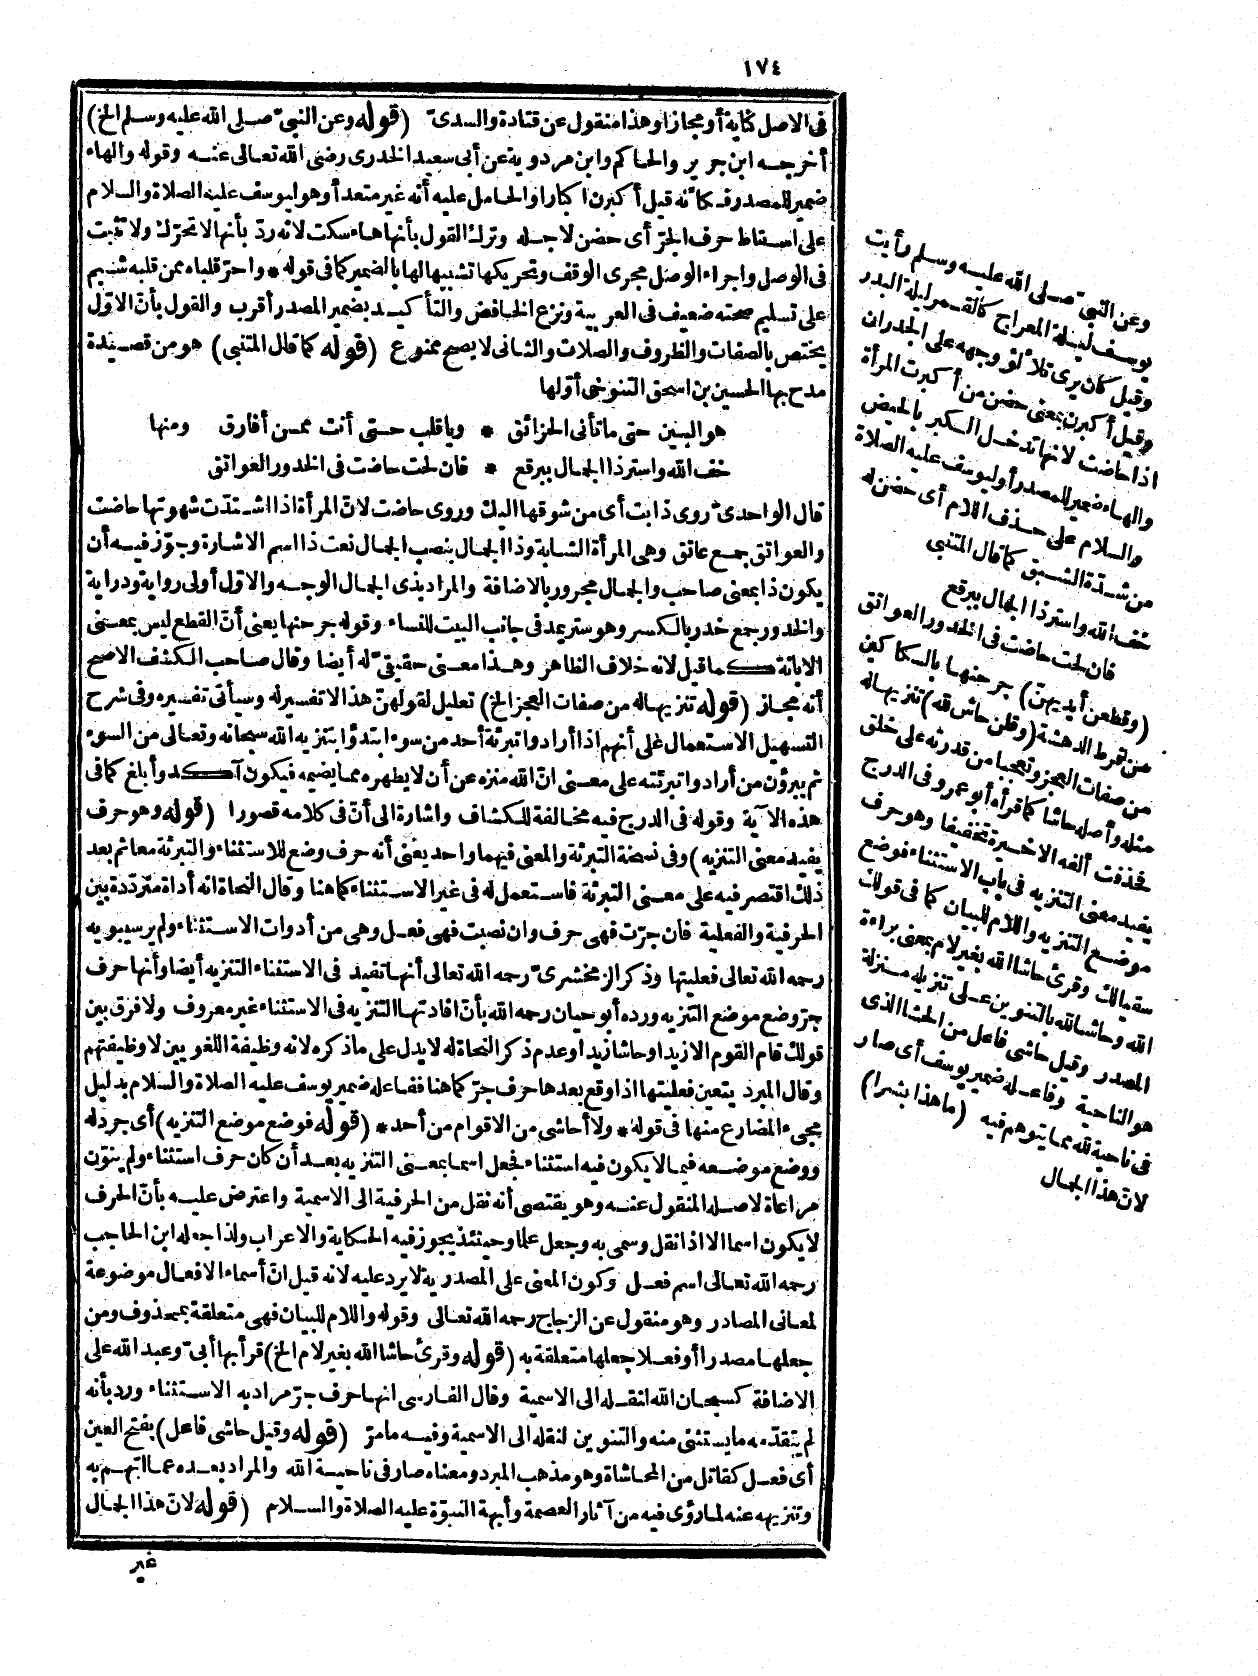 ١٧٤
في الاصل كناية أو مجازا وهذا منقول عن قتادة والسدىّ (قوله وعن النبيّ صلى الله عليه وسلم الخ)
أخرجه ابن جرير والحاكم وابن مردوية عن أبي سعيد الخدرى رضى الله تعالى عنه وقوله والهاء
ضمير للمصدر فكأنه قيل أكبرن اكبارا والحامل عليه أنه غير متعد أو هو ليوسف عليه الصلاة والسلام
على اسقاط حرف الجرّ أى حضن لاجله وترك القول بأنها هاء سكت لانه ردّ بأنها لا تحرّك ولا تثبت
في الوصل واجراء الوصل مجرى الوقف وتحريكها تشبيها لها بالضمير كما في قوله * واحرّ قلباه ممن قلبه شبم
على تسليم صحته ضعيف في العربية ونزع الخافض والتأكيد بضمير المصدر أقرب والقول بأنّ الاوّل
يختص بالصفات والظروف والصلات والثانى لا يصح ممنوع (قوله كما قال المتنبى) هو من قصيدة
مدح بها الحسين بن اسحق التنوخى أوّلها
هو البين حتى ما تأنى الحزائق * ويا قلب حتى أنت ممن أفارق ومنها
خف الله واستر ذا الجمال ببرقع * فان لحت حاضت في الخدور العواتق
قال الواحدىّ روى ذابت أى من شوقها اليك وروى حاضت لانّ المرأة اذا اشتدّت شهوتها حاضت
والعواتق جمع عاتق وهى المرأة الشابة وذا الجمال بنصب الجمال نعت ذا اسم الاشارة وجوّز فيه أن
يكون ذا بمعنى صاحب والجمال مجرور بالاضافة والمراد بذى الجمال الوجه والاوّل أولى رواية ودراية
والخدور جمع خدر بالكسر وهو ستر يمد في جانب البيت للنساء وقوله جرحنها يعنى أنّ القطع ليس بمعنى
الابانة كما قيل لانه خلاف الظاهر وهذا معنى حقيقىّ له أيضا وقال صاحب الكشف الاصح
أنه مجاز (قوله تنزيها له من صفات العجز الخ) تعليل لقولهنّ هذا لا تفسير له وسيأتى تفسيره وفى شرح
التسهيل الاستعمال على أنهم اذا أرادوا تبرئة أحد من سوء ابتدؤا بتنزيه الله سبحانه وتعالى من السوء
ثم يبرؤن من أرادوا تبرئته على معنى انّ الله منزه عن أن لا يطهره مما يضيمه فيكون آكد وأبلغ كما في
هذه الآية وقوله في الدرج فيه مخالفة للكشاف واشارة الى أنّ في كلامه قصورا (قوله وهو حرف
يفيد معنى التنزيه) وفى نسخة التبرئة والمعنى فيهما واحد يعنى أنه حرف وضع للاستثناء والتبرئة معا ثم بعد
ذلك اقتصر فيه على معنى التبرئة فاستعمل له في غير الاستثناء كما هنا وقال النحاة انه أداة متردّدة بين
الحرفية والفعلية فان جرّت فهى حرف وان نصبت فهى فعل وهى من أدوات الاستثناء ولم ير سيبويه
رحمه الله تعالى فعليتها وذكر الزمخشرىّ رحمه الله تعالى أنها تفيد في الاستثناء التنزيه أيضا وأنها حرف
جرّ وضع موضع التنزيه ورده أبو حيان رحمه الله بأنّ افادتها التنزيه في الاستثناء غير معروف ولا فرق بين
قولك قام القوم الا زيدا وحاشا زيدا وعدم ذكر النحاة له لا يدل على ما ذكره لانه وظيفة اللغويين لا وظيفتهم
وقال المبرد يتعين فعليتها اذا وقع بعدها حرف جرّ كما هنا ففاعله ضمير يوسف عليه الصلاة والسلام بدليل
مجىء المضارع منها في قوله * ولا أحاشى من الاقوام من أحد * (قوله فوضع موضع التنزيه) أى جرد له
ووضع موضعه فيما لا يكون فيه استثناء فجعل اسما بمعنى التنزيه بعد أن كان حرف استثناء ولم ينوّن
مراعاة لاصله المنقول عنه وهو يقتضى أنه نقل من الحرفية الى الاسمية واعترض عليه بأنّ الحرف
لا يكون اسما الا اذا نقل وسمى به وجعل علما وحينئذ يجوز فيه الحكاية والاعراب ولذا جعله ابن الحاجب
رحمه الله تعالى اسم فعل وكون المعنى على المصدرية لا يرد عليه لانه قيل انّ أسماء الافعال موضوعة
لمعانى المصادر وهو منقول عن الزجاج رحمه الله تعالى وقوله واللام للبيان فهى متعلقة بمحذوف ومن
جعلها مصدرا أو فعلا جعلها متعلقة به (قوله وقرئ حاشا الله بغير لام الخ) قرأ بها أبىّ وعبد الله على
الاضافة كسبحان الله لنقله الى الاسمية وقال الفارسى انها حرف جرّ مراد به الاستثناء ورد بأنه
لم يتقدّمه ما يستثنى منه والتنوين لنقله الى الاسمية وفيه ما مرّ (قوله وقيل حاشى فاعل) بفتح العين
أى فعل كقاتل من المحاشاة وهو مذهب المبرد ومعناه صار في ناحية الله والمراد بعده عما اتهم به
وتنزيهه عنه لما رؤى فيه من آثار العصمة وأبهة النبوّة عليه الصلاة والسلام (قوله لانّ هذا الجمال
غير
وعن النبىّ صلى الله عليه وسلم رأيت
يوسف ليلة المعراج كالقمر ليلة البدر
وقيل كان يرى تلألؤ وجهه على الجدران
وقيل أكبرن بمعنى حضن من أكبرت المرأة
اذا حاضت لانها تدخل الكبر بالحيض
والهاء ضمير للمصدر أو ليوسف عليه الصلاة
والسلام على حذف اللام أى حضن له
من شدّة الشبق كما قال المتنبى
خف الله واستر ذا الجمال ببرقع
فان لحت حاضت في الخدور العواتق
(وقطعن أيديهنّ) جرحنها بالسكاكين
من فرط الدهشة (وقلن حاش لله) تنزيها له
من صفات العجز وتعجبا من قدرته على خلق
مثله وأصله حاشا كما قرأه أبو عمرو في الدرج
فحذفت ألفه الاخيرة تخفيفا وهو حرف
يفيد معنى التنزيه في باب الاستثناء فوضع
موضع التنزيه واللام للبيان كما في قولك
سقيا لك وقرئ حاشا الله بغير لام بمعنى براءة
الله وحاشا لله بالتنوين على تنزيله منزلة
المصدر وقيل حاشى فاعل من الحشا الذى
هو الناحية وفاعله ضمير يوسف أى صار
في ناحية لله مما يتوهم فيه (ما هذا بشرا)
لانّ هذا الجمال